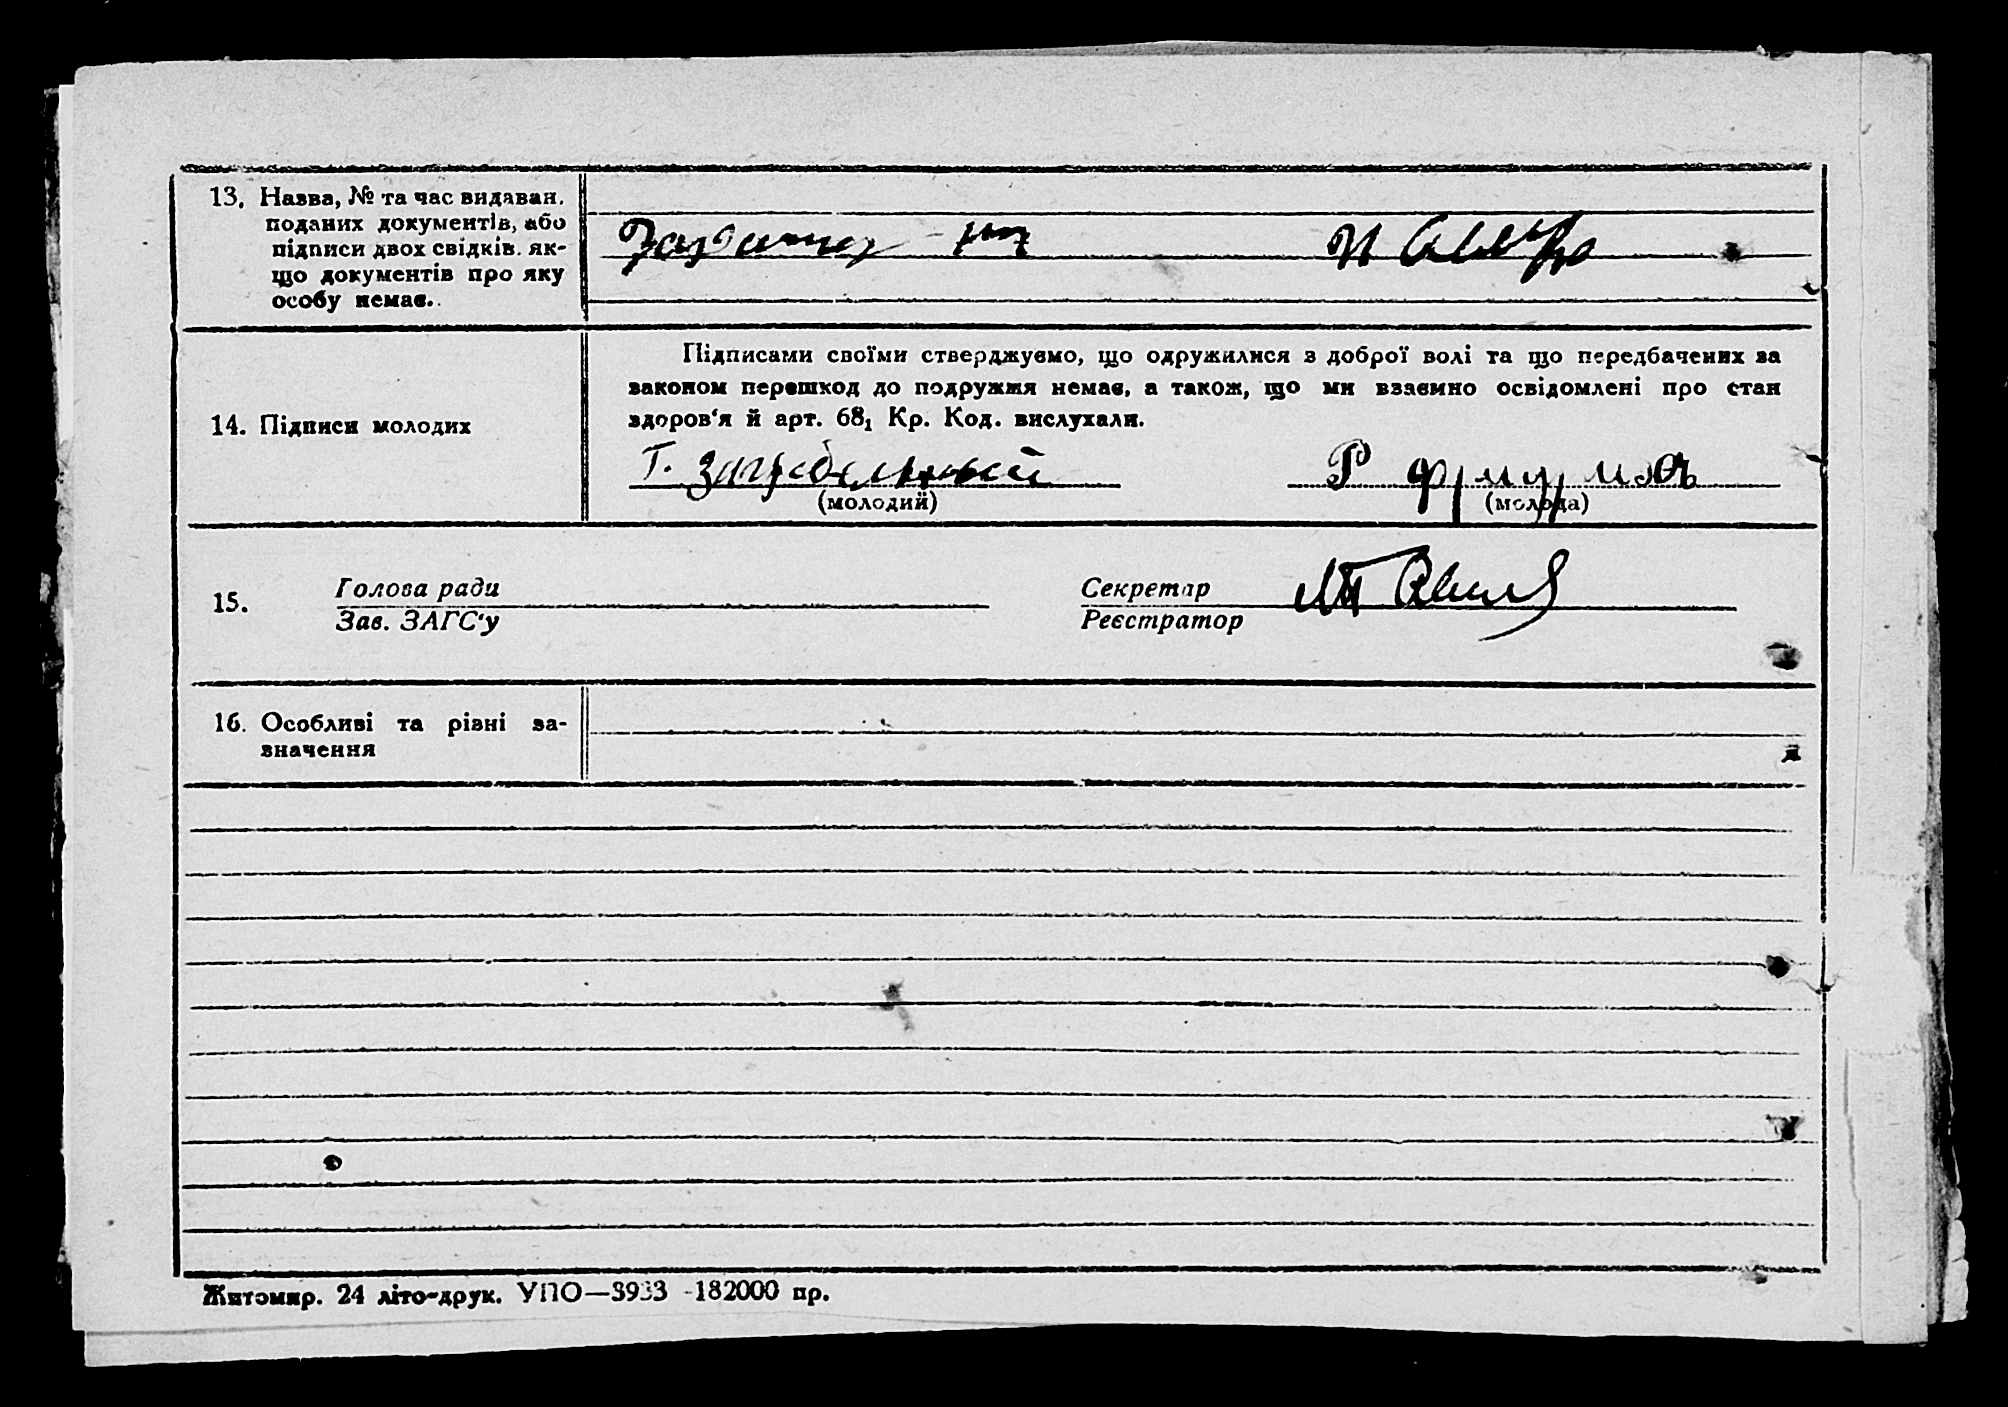 13. Назва, № та час видаван.
поданих документів, або
підписи двох свідків. як-
що документів про яку
особу немає.
Підписами своїми стверджуємо, що одружилися з доброї волі та що передбачених за
законом перешкод до подружжя немає, а також, що ми взаємно освідомлені про стан
здоров'я й арт. 68₁ Кр. Код. вислухали.
14. Підписи молодих
Т. Загребельний
Р
(молодий)
(молода)
15.
Голова ради
Зав. ЗАГС'у
Секретар
Реєстратор
16. Особливі та різні за-
значення
Житомир. 24 літо-друк. УПО—3933 -182000 пр.